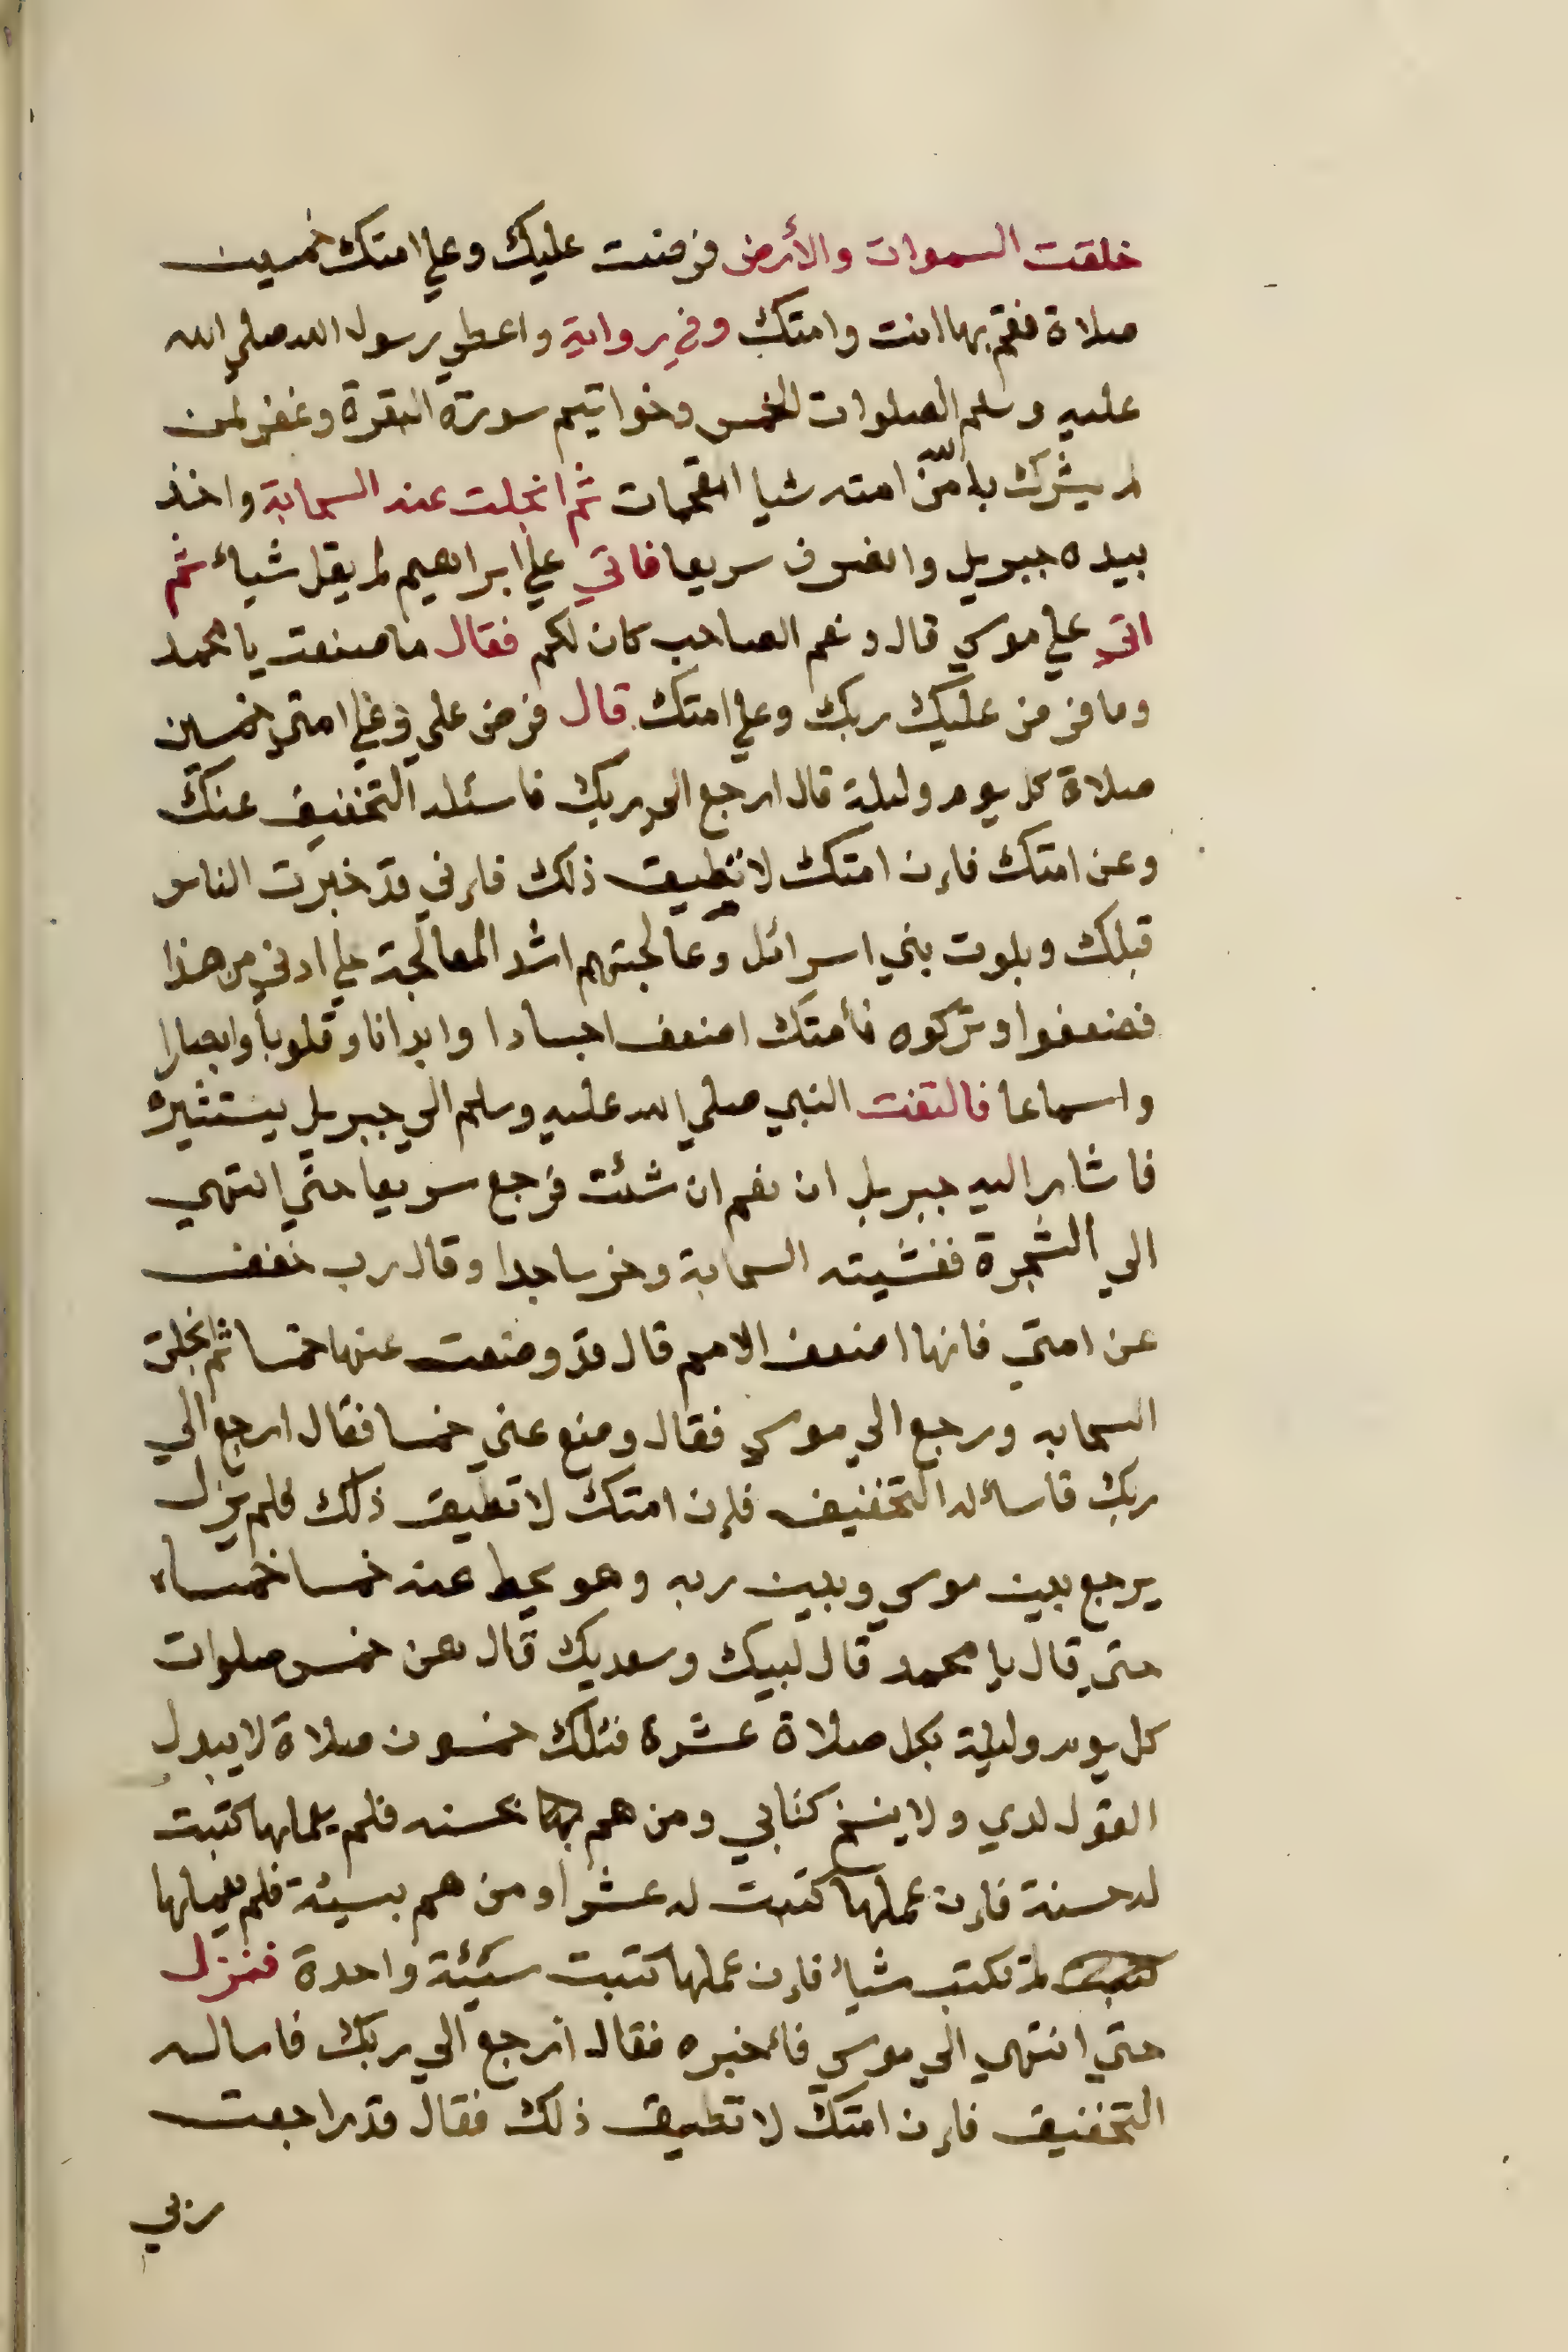 خلقت السموات والأرض فرضت عليك وعلي امتك خمسين
صلاة فقم بها انت وامتك وفي رواية واعطي رسول الله صلي الله
عليه وسلم الصلوات الخمس وخواتيم سورة البقرة وغفر لمن
لم يشرك بالله من امته شيا المقحمات ثم انجلت عنه السحابة واخذ
بيده جبريل وانصرف سريعا فاتي علي ابراهيم لم يقل شياء ثم
اتي علي موسي قال ونعم الصاحب كان لكم فقال ما صنعت يا محمد
وما فرض عليك ربك وعلي امتك قال فرض علي وعلي امتي خمسين
صلاة كل يوم وليلة قال ارجع الي ربك فاسئله التخفيف عنك
وعن امتك فإن امتك لا تطيق ذلك فإني قد خبرت الناس
قبلك وبلوت بني اسرائل وعالجتهم اشد المعالجة علي ادني من هذا
فضعفوا وتركوه فأمتك اضعف اجسادا وابدانا وقلوبا وابصارا
واسماعا فالتفت النبي صلي الله عليه وسلم الي جبريل يستشيره
فاشار اليه جبريل ان نعم ان شئت فرجع سريعا حتي انتهي
الي الشجرة فغشيته السحابة وخر ساجدا وقال رب خفف
عن امتي فانها اضعف الامم قال قد وضعت عنها خمسا ثم انجلت
السحابه ورجع الي موسي فقال وضع عني خمسا فقال ارجع الي
ربك فاساله التخفيف فإن امتك لا تطيق ذلك فلم يزل
يرجع بين موسي وبين ربه وهو يحط عنه خمسا خمسا
حتي قال يا محمد قال لبيك وسعديك قال هن خمس صلوات
كل يوم وليلة بكل صلاة عشرة فتلك خمسون صلاة لا يبدل
القول لدي ولا ينسخ كتابي ومن هم بحسنه فلم يعملها كتبت
له حسنة فإن عملها كتبت له عشرا ومن هم بسيئة فلم يعملها
لم تكتب شيأ فإن عملها كتبت سيئة واحدة فنزل
حتي انتهي الي موسي فأخبره فقال ارجع الي ربك فاساله
التخفيف فإن امتك لا تطيق ذلك فقال قد راجعت
ربي